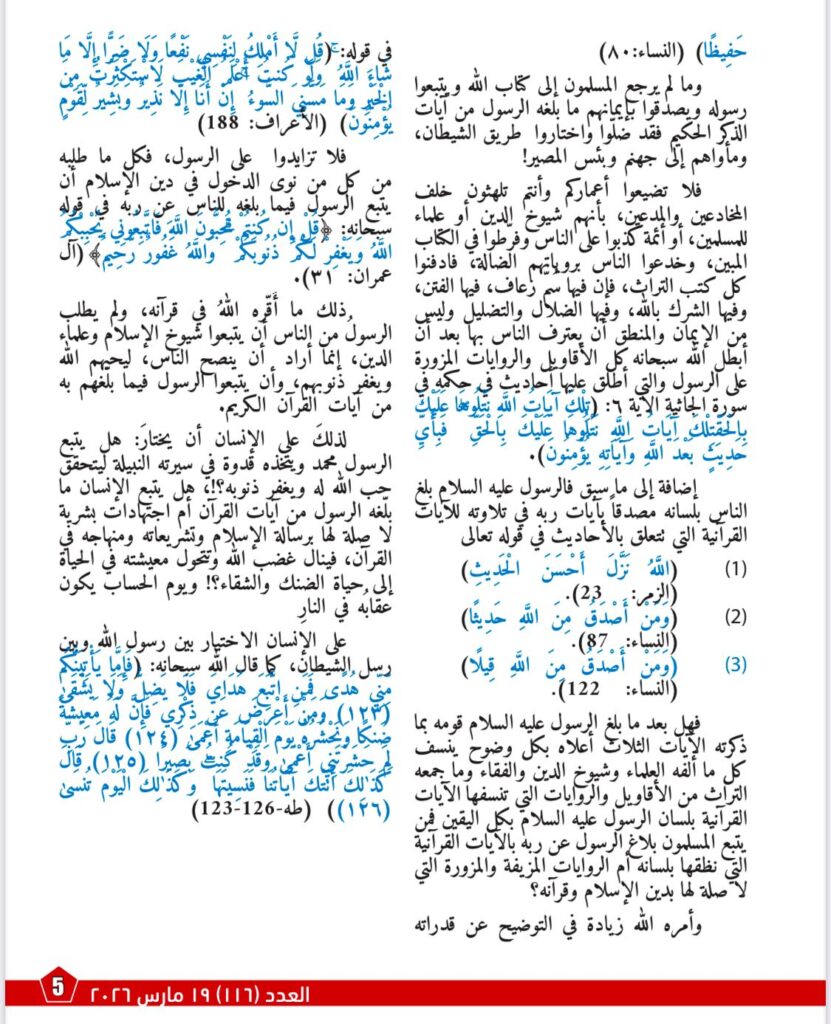 حَفِيظًا) (النساء:٨٠)
وما لم يرجع المسلمون إلى كتاب الله ويتبعوا
رسوله ويصدقوا بإيمانهم ما بلغه الرسول من آيات
الذكر الحكيم فقد ضلّوا واختاروا طريق الشيطان،
ومأواهم إلى جهنم وبئس المصير!
فلا تضيعوا أعماركم وأنتم تلهثون خلف
المخادعين والمدعين، بأنهم شيوخ الدين أو علماء
للمسلمين، أو أئمة كذبوا على الناس وفرّطوا في الكتاب
المبين، وخدعوا الناس بروياتهم الضالة، فادفنوا
كل كتب التراث، فإن فيها سُمّ زعاف، فيها الفتن،
وفيها الشرك بالله، وفيها الضلال والتضليل وليس
من الإيمان والمنطق أن يعترف الناس بها بعد أن
أبطل الله سبحانه كل الأقاويل والروايات المزورة
على الرسول والتي أطلق عليها أحاديث في حكمه في
سورة الجاثية الآية ٦: (تِلْكَ آيَاتُ اللَّهِ نَتْلُوهَا عَلَيْكَ
بِالْحَقِّتِلْكَ آيَاتُ اللَّهِ نَتْلُوهَا عَلَيْكَ بِالْحَقِّ ۖ فَبِأَيِّ
حَدِيثٍ بَعْدَ اللَّهِ وَآيَاتِهِ يُؤْمِنُونَ).
إضافة إلى ما سبق فالرسول عليه السلام بلغ
الناس بلسانه مصدقاً بآيات ربه في تلاوته للآيات
القرآنية التي تتعلق بالأحاديث في قوله تعالى
(1) (اللَّهُ نَزَّلَ أَحْسَنَ الْحَدِيثِ)
(الزمر: 23).
(2) (وَمَنْ أَصْدَقُ مِنَ اللَّهِ حَدِيثًا)
(النساء: 87).
(3) (وَمَنْ أَصْدَقُ مِنَ اللَّهِ قِيلًا)
(النساء: 122).
فهل بعد ما بلغ الرسول عليه السلام قومه بما
ذكرته الآيات الثلاث أعلاه بكل وضوح ينسف
كل ما ألفه العلماء وشيوخ الدين والفقاء وما جمعه
التراث من الأقاويل والروايات التي تنسفها الآيات
القرآنية بلسان الرسول عليه السلام بكل اليقين فمن
يتبع المسلمون بلاغ الرسول عن ربه بالآيات القرآنية
التي نظقها بلسانه أم الروايات المزيفة والمزورة التي
لا صلة لها بدين الإسلام وقرآنه؟
وأمره الله زيادة في التوضيح عن قدراته
في قوله: (قُل لَّا أَمْلِكُ لِنَفْسِي نَفْعًا وَلَا ضَرًّا إِلَّا مَا
شَاءَ اللَّهُ ۚ وَلَوْ كُنتُ أَعْلَمُ الْغَيْبَ لَاسْتَكْثَرْتُ مِنَ
الْخَيْرِ وَمَا مَسَّنِيَ السُّوءُ ۚ إِنْ أَنَا إِلَّا نَذِيرٌ وَبَشِيرٌ لِّقَوْمٍ
يُؤْمِنُونَ) (الأعراف: 188)
فلا تزايدوا على الرسول، فكل ما طلبه
من كل من نوى الدخول في دين الإسلام أن
يتبع الرسول فيما بلغه للناس عن ربه في قوله
سبحانه: ﴿قُلْ إِن كُنتُمْ تُحِبُّونَ اللَّهَ فَاتَّبِعُونِي يُحْبِبْكُمُ
اللَّهُ وَيَغْفِرْ لَكُمْ ذُنُوبَكُمْ ۗ وَاللَّهُ غَفُورٌ رَّحِيمٌ﴾ (آل
عمران: ٣١).
ذلك ما أقّره اللهُ في قرآنه، ولم يطلب
الرسولُ من الناس أن يتبعوا شيوخ الإسلام وعلماء
الدين، إنما أراد أن ينصح الناس، ليحبهم الله
ويغفر ذنوبهم، وأن يتبعوا الرسول فيما بلّغهم به
من آيات القرآن الكريم.
لذلكَ على الإنسان أن يختارَ: هل يتبع
الرسول محمد ويتخذه قدوة في سيرته النبيلة ليتحقق
حب الله له ويغفر ذنوبه؟!، هل يتبع الإنسان ما
بلّغه الرسول من آيات القرآن أم اجتهادات بشرية
لا صلة لها برسالة الإسلام وتشريعاته ومنهاجه في
القرآن، فينال غضب الله وتتحول معيشته في الحياة
إلى حياة الضنك والشقاء؟! ويوم الحساب يكون
عقابُه في النارِ
على الإنسان الاختيار بين رسول الله وبين
رسل الشيطان، كما قال الله سبحانه: (فَإِمَّا يَأْتِيَنَّكُم
مِّنِّي هُدًى فَمَنِ اتَّبَعَ هُدَايَ فَلَا يَضِلُّ وَلَا يَشْقَىٰ
(١٢٣) وَمَنْ أَعْرَضَ عَن ذِكْرِي فَإِنَّ لَهُ مَعِيشَةً
ضَنكًا وَنَحْشُرُهُ يَوْمَ الْقِيَامَةِ أَعْمَىٰ (١٢٤) قَالَ رَبِّ
لِمَ حَشَرْتَنِي أَعْمَىٰ وَقَدْ كُنتُ بَصِيرًا (١٢٥) قَالَ
كَذَٰلِكَ أَتَتْكَ آيَاتُنَا فَنَسِيتَهَا ۖ وَكَذَٰلِكَ الْيَوْمَ تُنسَىٰ
(١٢٦)) (طه-126-123)
العدد (١١٦) ١٩ مارس ٢٠٢٦ 5